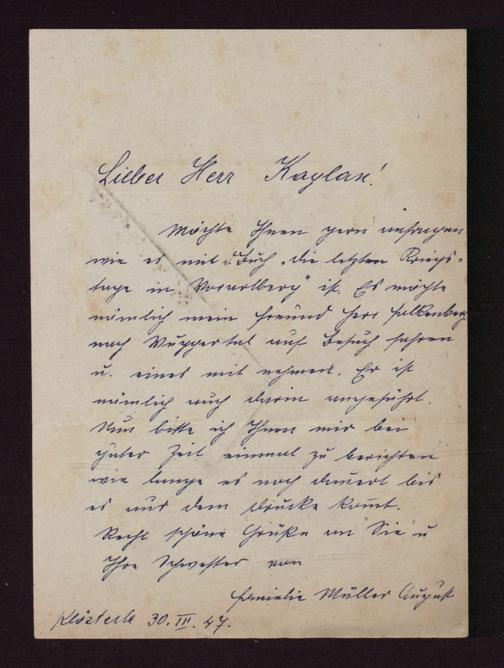 Lieber Herr Kaplan!
Möchte Ihnen gern anfragen
wie es mit d. Buch „die letzten Kriegs-
tage in Vorarlberg" ist. Es möchte
nämlich mein Freund Herr Falkenberg
nach Wuppertal auf Besuch fahren
u. eines mit nehmen. Er ist
nämlich auch darin angeführt.
Nun bitte ich Ihnen mir bei
guter Zeit einmal zu berichten
wie lange es noch dauert bis
es aus dem Drucke kommt.
Recht schöne Grüße an Sie u
Ihre Schwester von
Familie Müller August
Klösterle 30. III. 47.